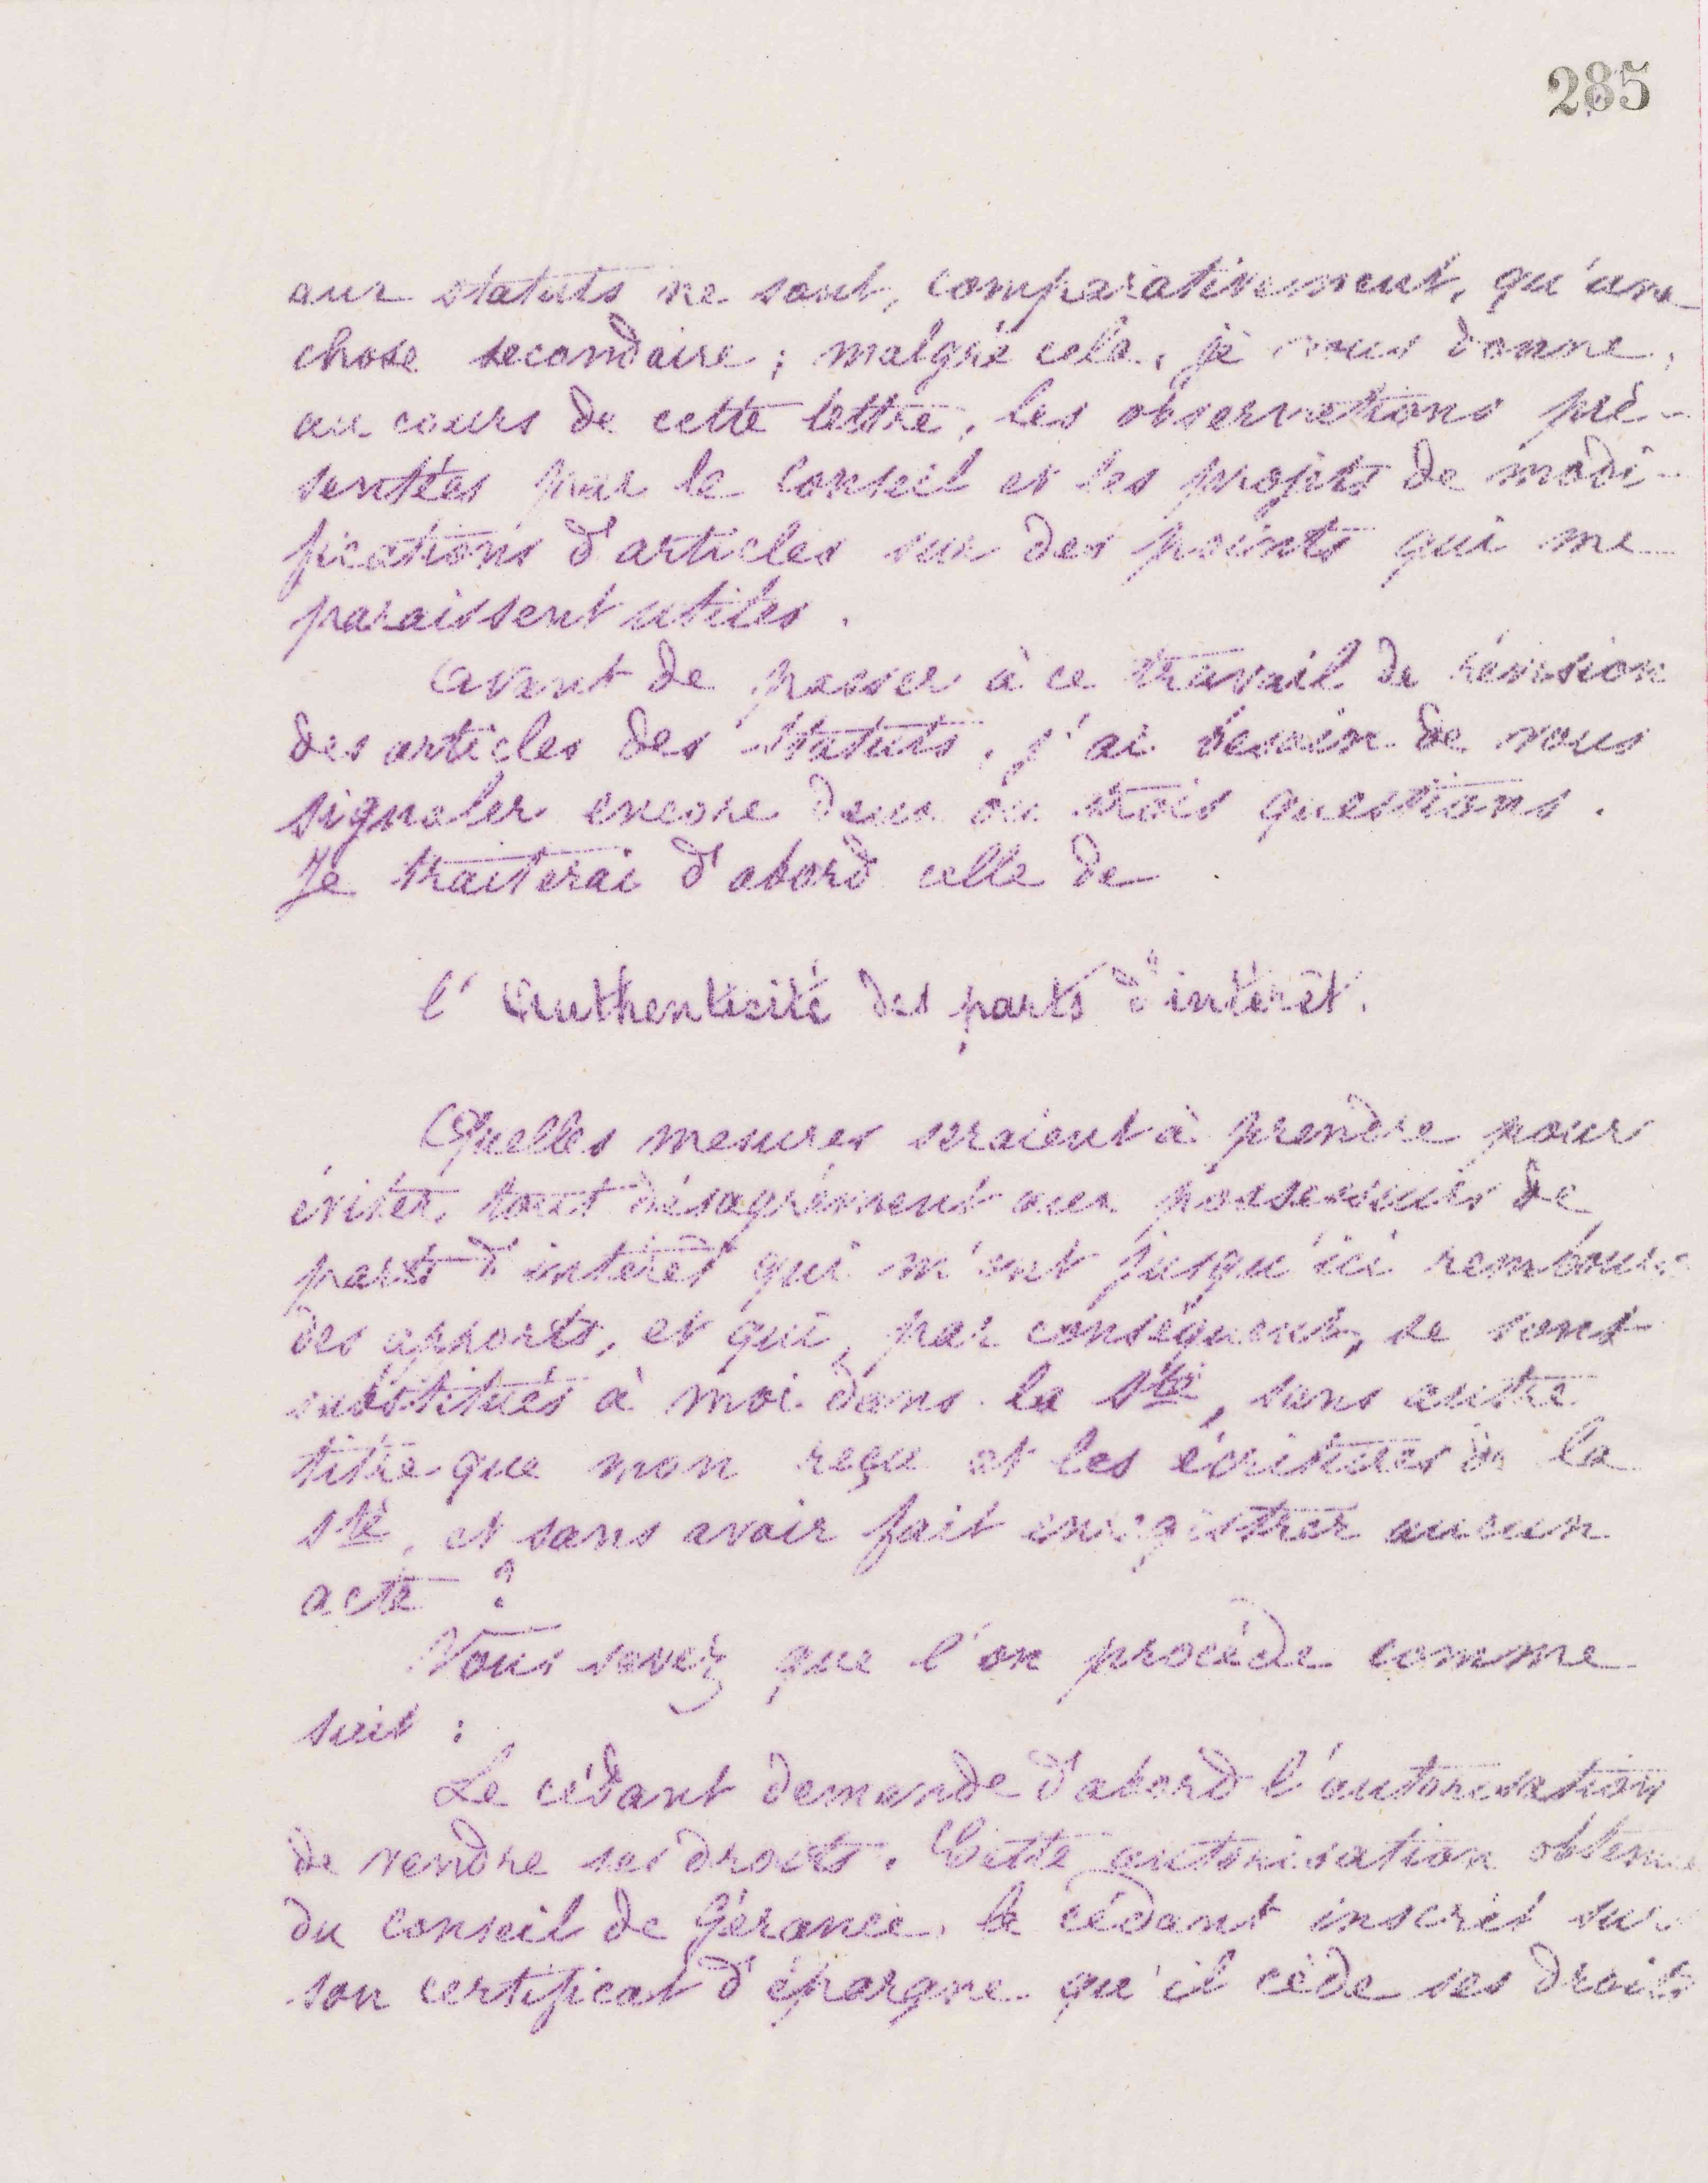 285
aux statuts ne sont, comparativement, qu'une
chose secondaire ; malgré cela, je vous donne,
au cours de cette lettre, les observations pré-
sentées par le Conseil et les projets de modi-
fications d'articles sur des points qui me
paraissent utiles.
Avant de passer à ce travail de révision
des articles des statuts, j'ai besoin de vous
signaler encore deux ou trois questions.
Je traiterai d'abord celle de
l'Authenticité des parts d'intérêt.
Quelles mesures seraient à prendre pour
éviter tout désagrément aux possesseurs de
parts d'intérêt qui m'ont jusqu'ici rembours
des apports, et qui, par conséquent, se sont
substitués à moi dans la Sté, sans autre
titre que mon reçu et les écritures de la
Sté, et sans avoir fait enregistrer aucun
acte ?
Vous savez que l'on procède comme
suit :
Le cédant demande d'abord l'autorisation
de vendre ses droits. Cette autorisation obtenue
du conseil de Gérance, le cédant inscrit sur
son certificat d'épargne qu'il cède ses droits